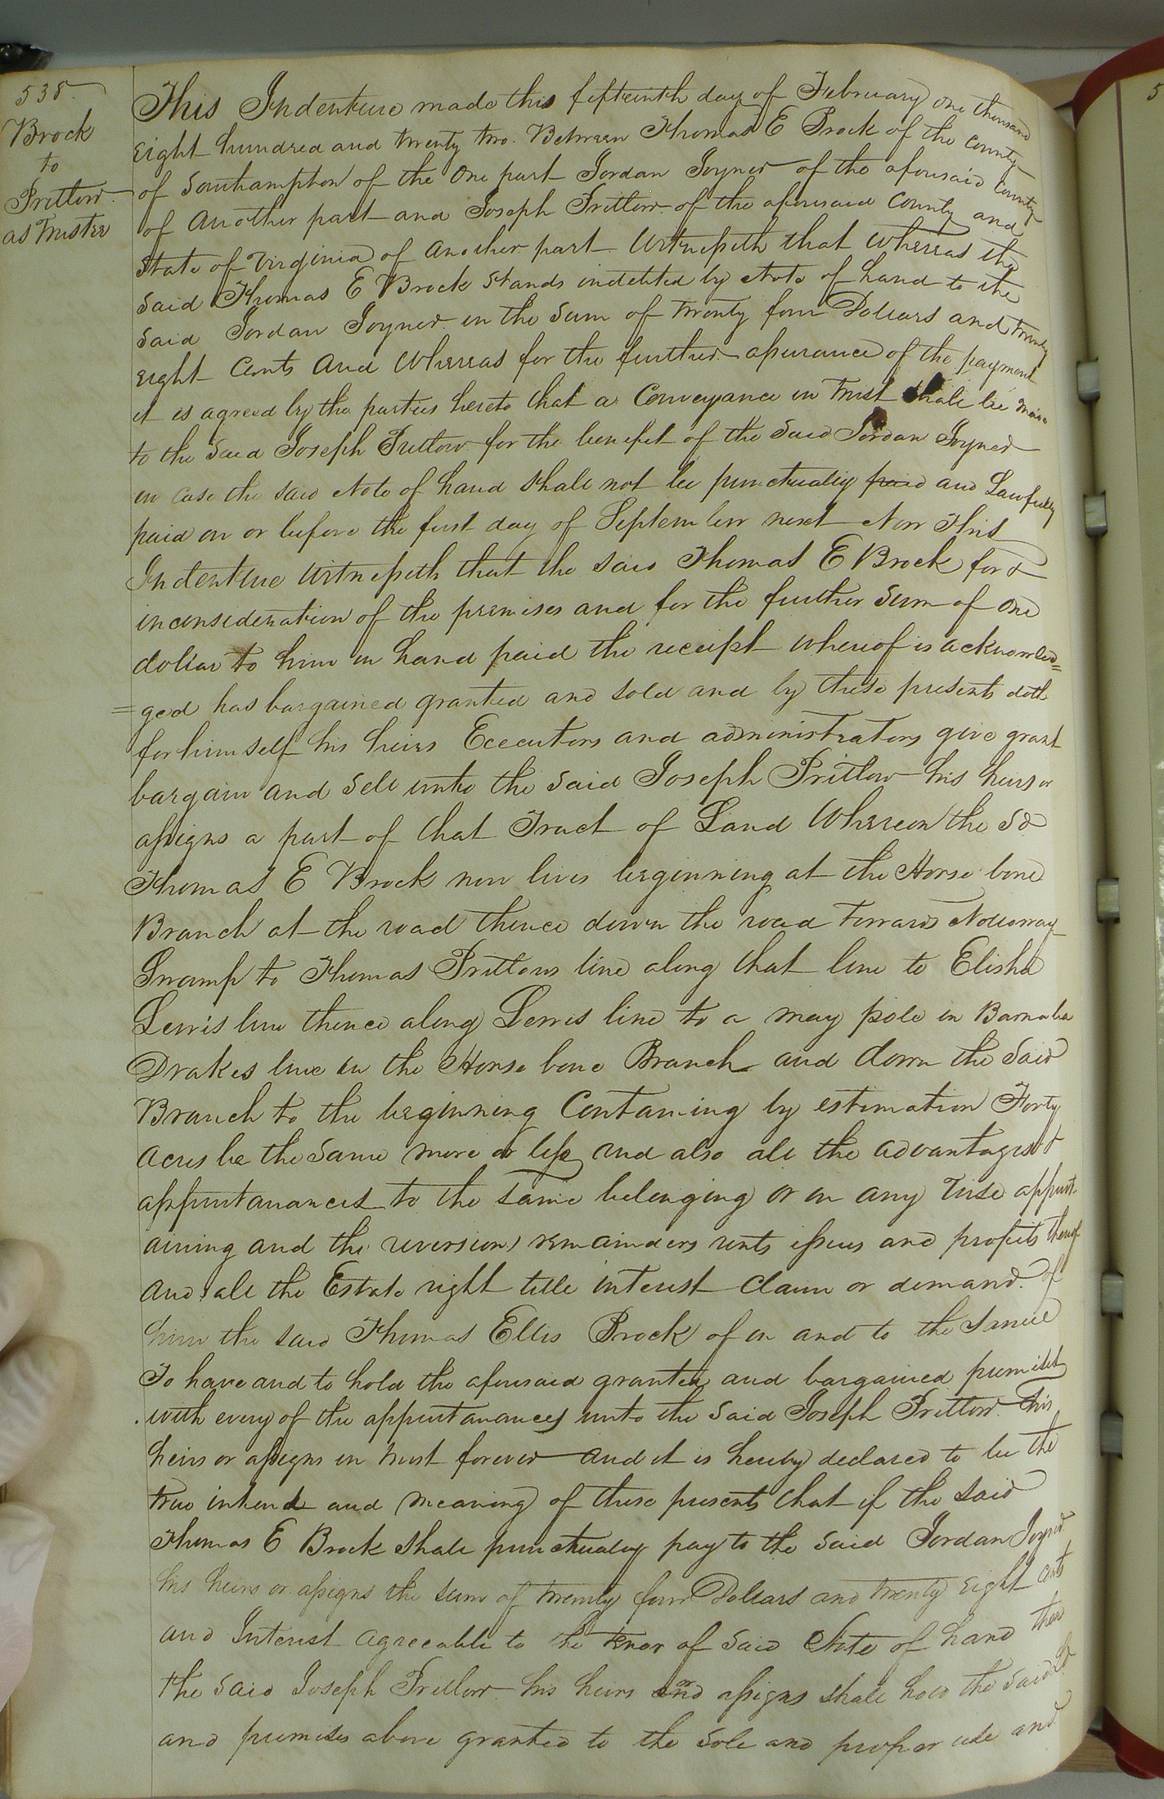 538
Brock
to
Pritlow
as Trustee
This Indenture made this fifteenth day of February one thousand
eight hundred and twenty two. Between Thomas E Brock of the County
of Southampton of the one part Jordan Joyner of the aforesaid County
of another part and Joseph Pritlow of the aforesaid County and
State of Virginia of another part Witnesseth that Whereas the
said Thomas E Brock stands indebted by Note of hand to the
said Jordan Joyner in the sum of twenty four Dollars and twenty
eight Cents And Whereas for the further assurance of the payment
it is agreed by the parties hereto that a Conveyance in Trust shall be made
to the said Joseph Pritlow for the benefit of the said Jordan Joyner
in case the said Note of hand shall not be punctually paid and Lawfully
paid on or before the first day of September next Now This
Indenture Witnesseth that the said Thomas E Brock for &
inconsideration of the premises and for the further sum of one
dollar to him in hand paid the receipt whereof is acknowled=
=ged has bargained granted and sold and by these presents doth
for himself his heirs Executors and administrators give grant
bargain and sell unto the said Joseph Pritlow his heirs or
assigns a part of that Tract of Land Whereon the Sd
Thomas E Brock now lives beginning at the Horse bone
Branch at the road thence down the road Torrards Nottoway
Swamp to Thomas Pritlows line along that line to Elisha
Lewis line thence along Lewis line to a may pole in Barnaba
Drakes line in the Horse bone Branch and down the said
Branch to the beginning Containing by estimation Forty
acres be the same more or less and also all the advantages &
appurtanances to the same belonging or in any wise appurt-
aining and the reversion, remainders rents issues and profits thereof
and all the Estate right title interest claim or demand of
him the said Thomas Ellis Brock of in and to the same
To have and to hold the aforesaid granted and bargained premises
with every of the appurtanances unto the said Joseph Pritlow his
heirs or assigns in trust forever and it is hereby declared to be the
true intend and meaning of these presents that if the said
Thomas E Brock shall punctualy pay to the said Jordan Joyner
his heirs or assigns the sum of twenty four Dollars and twenty eight Cents
and Interest agreeable to the tenor of said Note of hand then
the said Joseph Pritlow his heirs and assigns shall hold the said
and premises above granted to the sole and proper use and